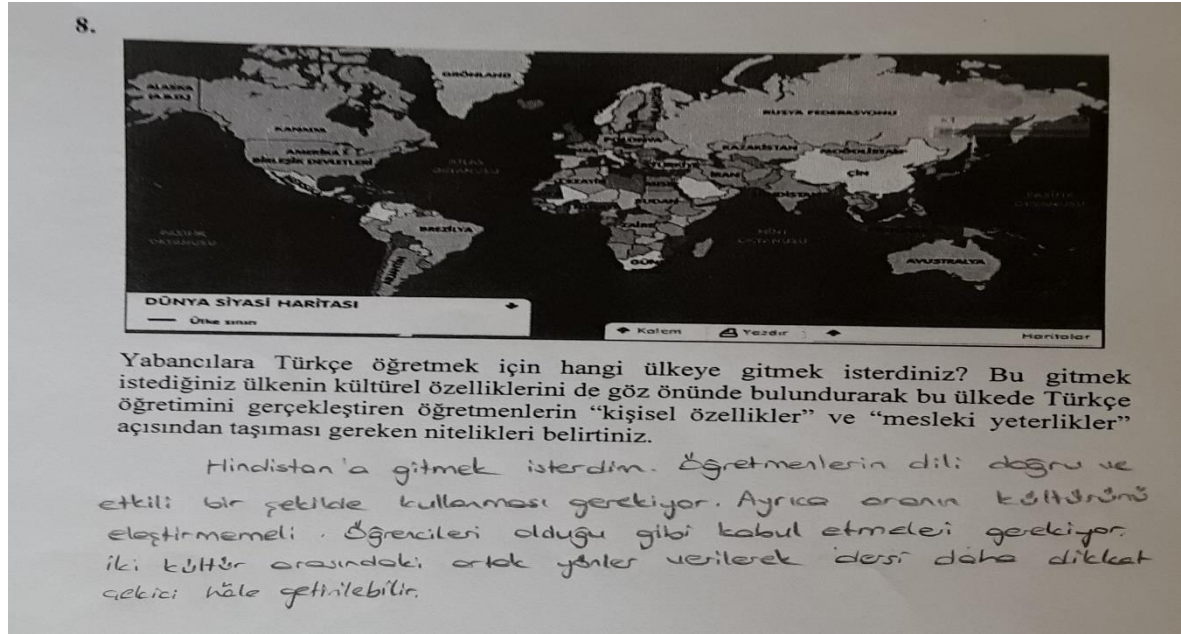 8.
GRÖNLAND
ALASKA
(A.B.D.)
RUSYA FEDERASYONU
KANADA
POLONYA
KAZAKİSTAN
MOĞOLİSTAN
AMERİKA
BİRLEŞİK DEVLETLERİ
ATLAS
OKYANUSU
TÜRKİYE
İRAN
ÇİN
CEZAYİR
MISIR
HİNDİSTAN
PASİFİK
OKYANUSU
SUDAN
BREZİLYA
ZAİRE
HİNT
OKYANUSU
PASİFİK
OKYANUSU
AVUSTRALYA
GÜN
DÜNYA SİYASİ HARİTASI
Ülke sınırı
Kalem Yazdır Haritalar
Yabancılara Türkçe öğretmek için hangi ülkeye gitmek isterdiniz? Bu gitmek
istediğiniz ülkenin kültürel özelliklerini de göz önünde bulundurarak bu ülkede Türkçe
öğretimini gerçekleştiren öğretmenlerin “kişisel özellikler” ve “mesleki yeterlikler”
açısından taşıması gereken nitelikleri belirtiniz.
Hindistan'a gitmek isterdim. Öğretmenlerin dili doğru ve
etkili bir şekilde kullanması gerekiyor. Ayrıca oranın kültürünü
eleştirmemeli. Öğrencileri olduğu gibi kabul etmeleri gerekiyor.
İki kültür arasındaki ortak yönler verilerek dersi daha dikkat
çekici hâle getirilebilir.